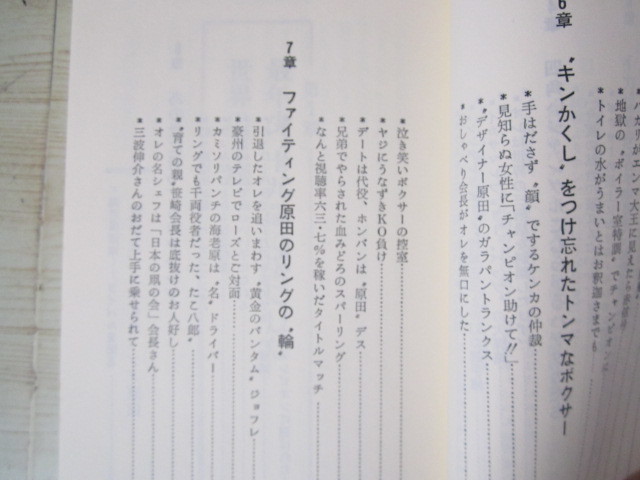 ＊トイレの水がうまいとはお釈迦さまでも
＊地獄の〝ボイラー室特訓〟でチャンピオンに
6章 〝キンかくし〟をつけ忘れたトンマなボクサー
＊手はださず〝顔〟でするケンカの仲裁
＊見知らぬ女性に「チャンピオン助けて!!」
＊〝デザイナー原田〟のガラパントランクス
＊おしゃべり会長がオレを無口にした
＊泣き笑いボクサーの控室
＊ヤジにうなずきKO負け
＊デートは代役、ホンバンは〝原田〟デス
＊兄弟でやらされた血みどろのスパーリング
＊なんと視聴率六三・七％を稼いだタイトルマッチ
7章 ファイティング原田のリングの〝輪〟
＊引退したオレを追いまわす〝黄金のバンタム〟ジョフレ
＊豪州のテレビでローズとご対面
＊カミソリパンチの海老原は〝名〟ドライバー
＊リングでも千両役者だった、たこ八郎
＊〝育ての親〟笹崎会長は底抜けのお人好し
＊オレの名シェフは「日本の凧の会」会長さん
＊三波伸介さんのおだて上手に乗せられて